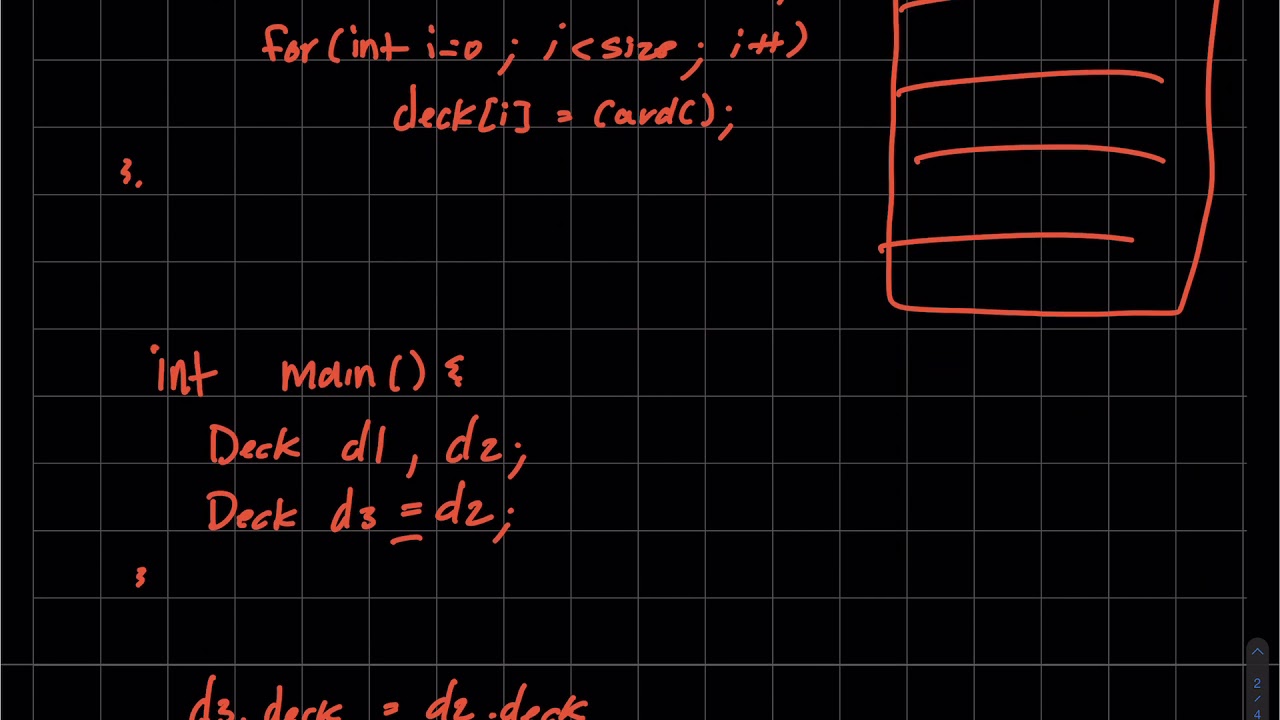 for(int i=0 ; i<size ; i++)
deck[i] = Card();
}.
int main() {
Deck d1, d2;
Deck d3 = d2;
}
d3.deck = d2.deck
2
/
4